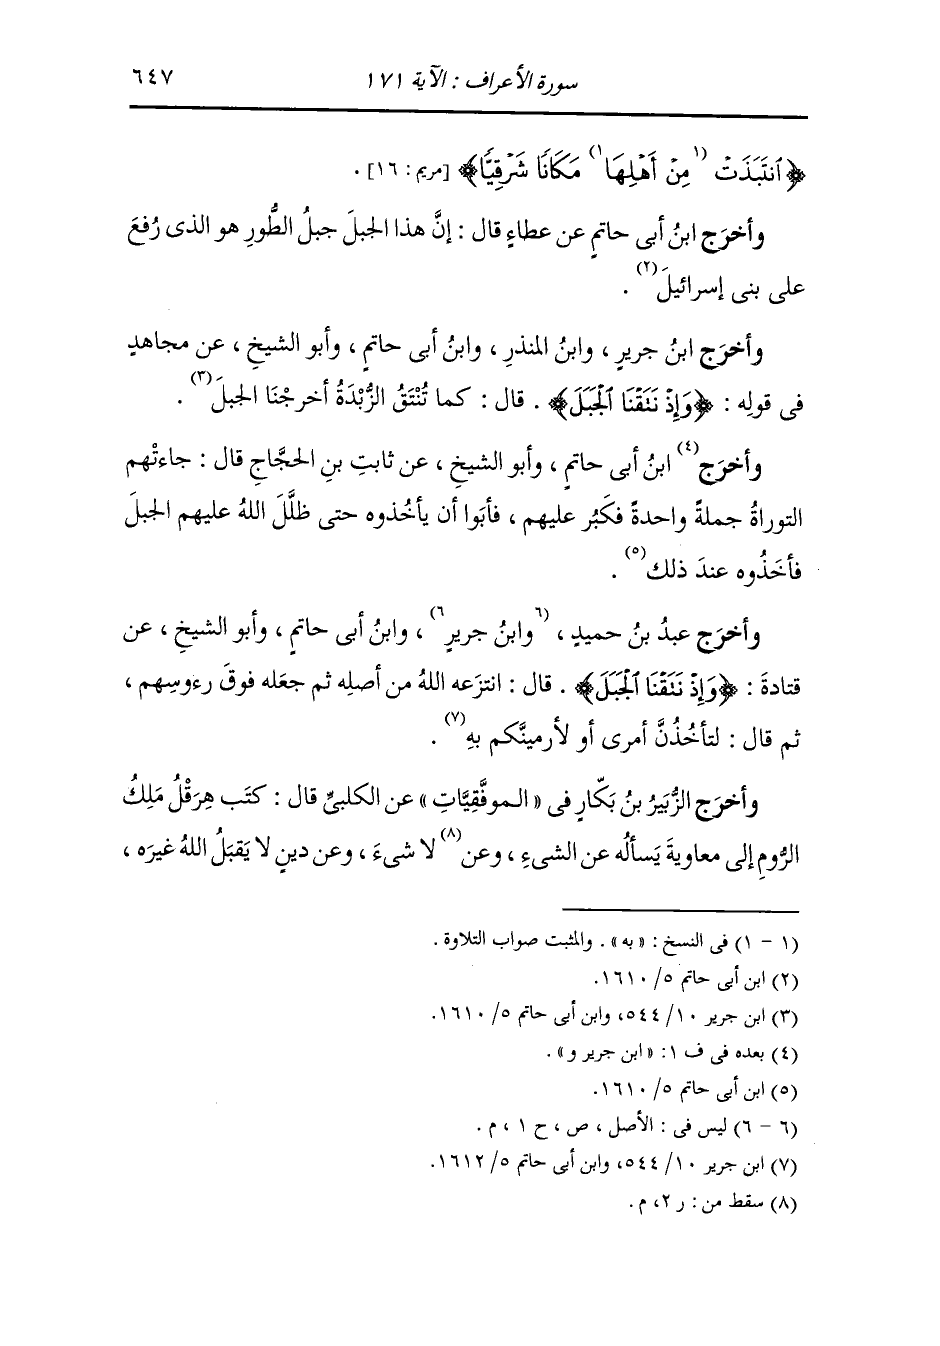 سورة الأعراف : الآية ١٧١ ٦٤٧
﴿ٱنتَبَذَتْ (١) مِنْ أَهْلِهَا (١) مَكَانًا شَرْقِيًّا﴾ [مريم : ١٦] .
وأخرَج ابنُ أبى حاتمٍ عن عطاءٍ قال : إنَّ هذا الجبلَ جبلُ الطُّورِ هو الذى رُفعَ
على بنى إسرائيلَ (٢) .
وأخرَج ابنُ جريرٍ ، وابنُ المنذرِ ، وابنُ أبى حاتمٍ ، وأبو الشيخِ ، عن مجاهدٍ
فى قولِه : ﴿وَإِذْ نَتَقْنَا ٱلْجَبَلَ﴾ . قال : كما تُنْتَقُ الزُّبْدَةُ أخرجْنَا الجبلَ (٣) .
وأخرَج (٤) ابنُ أبى حاتمٍ ، وأبو الشيخِ ، عن ثابتِ بنِ الحجَّاجِ قال : جاءتْهم
التوراةُ جملةً واحدةً فكَبُر عليهم ، فأبَوا أن يأخُذوه حتى ظلَّلَ اللهُ عليهم الجبلَ
فأخَذُوه عندَ ذلك (٥) .
وأخرَج عبدُ بنُ حميدٍ ، (٦) وابنُ جريرٍ (٦) ، وابنُ أبى حاتمٍ ، وأبو الشيخِ ، عن
قتادةَ : ﴿وَإِذْ نَتَقْنَا ٱلْجَبَلَ﴾ . قال : انتزَعه اللهُ من أصلِه ثم جعَله فوقَ رءوسِهم ،
ثم قال : لتأخُذُنَّ أمرى أو لأرمينَّكم بهِ (٧) .
وأخرَج الزُّبَيرُ بنُ بَكّارٍ فى « الموفَّقِيَّاتِ » عن الكلبىِّ قال : كتَب هِرَقْلُ مَلِكُ
الرُّومِ إلى معاويةَ يَسألُه عن الشىءِ ، وعن (٨) لا شىءَ ، وعن دينٍ لا يَقبَلُ اللهُ غيرَه ،
(١ - ١) فى النسخ : « به » . والمثبت صواب التلاوة .
(٢) ابن أبى حاتم ٥/ ١٦١٠.
(٣) ابن جرير ١٠/ ٥٤٤، وابن أبى حاتم ٥/ ١٦١٠.
(٤) بعده فى ف ١: « ابن جرير و » .
(٥) ابن أبى حاتم ٥/ ١٦١٠.
(٦ - ٦) ليس فى : الأصل ، ص ، ح ١ ، م .
(٧) ابن جرير ١٠/ ٥٤٤، وابن أبى حاتم ٥/ ١٦١٢.
(٨) سقط من : ر ٢، م .